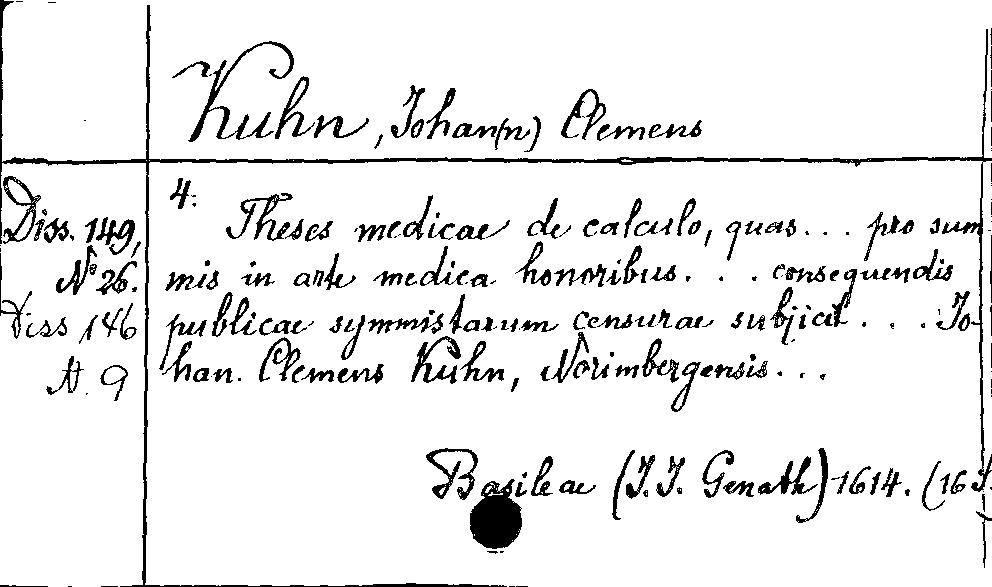 Kuhn, Johan(n) Clemens
Diss. 149,
N° 26.
Diss 146
N. 9
4.
Theses medicae de calculo, quas... pro sum
mis in arte medica honoribus... consequendis
publicae symmistarum censurae subjicit.... Jo-
han. Clemens Kuhn, Norimbergensis...
Basileae (J.J. Genath) 1614. (16 S.